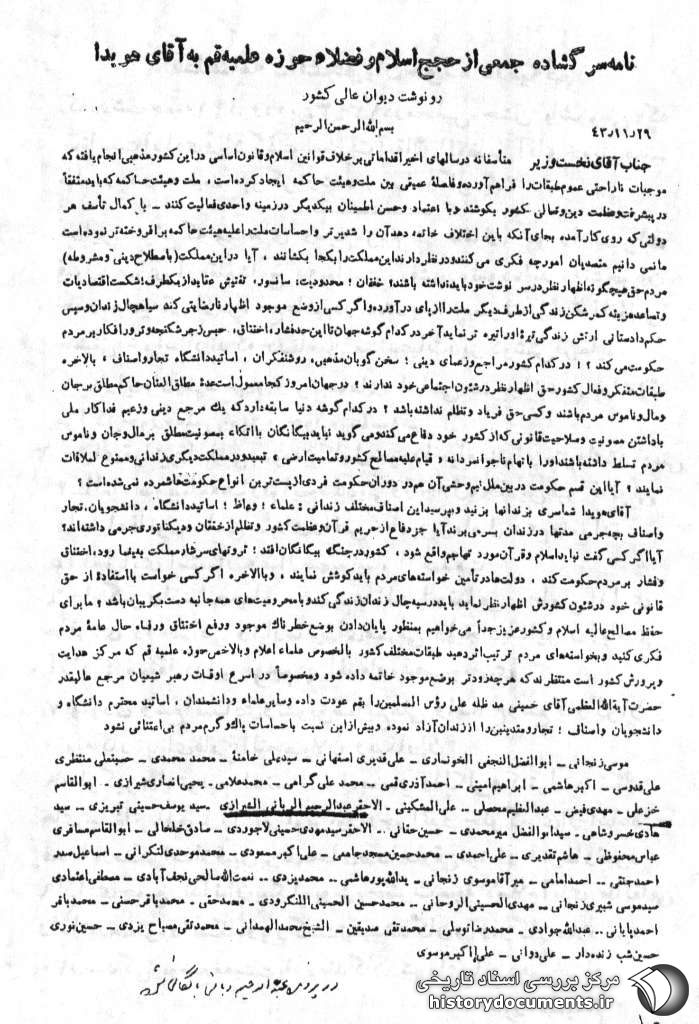 نامه سرگشاده جمعی از حجج اسلام و فضلاء حوزه علمیه قم به آقای هویدا
رونوشت دیوان عالی کشور
بسم الله الرحمن الرحیم
۴۳٫۱۱٫۲۹
جناب آقای نخست وزیر متأسفانه در سالهای اخیر اقداماتی بر خلاف قوانین اسلام و قانون اساسی در این کشور مذهبی انجام یافته که
موجبات ناراحتی عموم طبقات را فراهم آورده و فاصلهٔ عمیقی بین ملت و هیئت حاکمه ایجاد کرده است، ملت و هیئت حاکمه که باید متفقاً
در پیشرفت و عظمت دین و تعالی کشور بکوشند و با اعتماد و حسن اطمینان بیکدیگر در زمینه واحدی فعالیت کنند ـ با کمال تأسف هر
دولتی که روی کار آمده بجای آنکه باین اختلاف خاتمه دهد آن را شدیدتر و احساسات ملت را علیه هیئت حاکمه برافروخته تر نموده است
ما نمی دانیم متصدیان امور چه فکری می کنند و در نظر دارند این مملکت را بکجا بکشانند، آیا در این مملکت (باصطلاح دینی و مشروطه)
مردم حق هیچگونه اظهار نظر در سرنوشت خود نباید داشته باشند؟ خفقان؛ محدودیت، سانسور، تفتیش عقاید از یکطرف؛ شکست اقتصادیات
و تصاعد هزینه کمرشکن زندگی از طرف دیگر ملت را از پای در آورده و اگر کسی از وضع موجود اظهار نارضایتی کند سیاهچال زندان و سپس
حکم دادستانی ارتش زندگی تیرهٔ او را تیره تر نماید آخر در کدام گوشه جهان تا این حد فشار، اختناق، حبس، زجر، شکنجه و ترور افکار بر مردم
حکومت می کند؟! در کدام کشور مراجع و زعمای دینی؛ سخن گویان مذهبی، روشنفکران، اساتید دانشگاه تجار و اصناف، بالاخره
طبقات متفکر و فعال کشور حق اظهار نظر در شئون اجتماعی خود ندارند؟ در جهان امروز کجا معمول است عدهٔ مطلق العنان حاکم مطلق بر جان
و مال و ناموس مردم باشند و کسی حق فریاد و تظلم نداشته باشد؟ در کدام گوشه دنیا سابقه دارد که یك مرجع دینی و زعیم فداکار ملی
با داشتن مصونیت و صلاحیت قانونی که از کشور خود دفاع می کند و می گوید نباید بیگانگان با اتکاء بمصونیت مطلق بر مال و جان و ناموس
مردم تسلط داشته باشند او را باتهام ناجوانمردانه « قیام علیه مصالح کشور و تمامیت ارضی » تبعید و در مملکت دیگری زندانی و ممنوع الملاقات
نمایند؟ آیا این قسم حکومت در بین ملل نیم وحشی آن هم در دوران حکومت فردی از پست ترین انواع حکومتها شمرده نمی شده است؟
آقای هویدا شما سری بزندانها بزنید و بپرسید این اصناف مختلف زندانی: علماء؛ وعاظ؛ اساتید دانشگاه، دانشجویان، تجار
و اصناف بچه جرمی مدتها در زندان بسر می برند آیا جز دفاع از حریم قرآن و عظمت کشور و تظلم از خفقان و دیکتاتوری جرمی داشته اند؟
آیا اگر کسی گفت نباید اسلام و قرآن مورد تهاجم واقع شود، کشور در جنگ بیگانگان افتد؛ ثروتهای سرشار مملکت بیغما رود، اختناق
و فشار بر مردم حکومت کند، دولتها در تأمین خواسته های مردم باید کوشش نمایند، و بالاخره اگر کسی خواست با استفادهٔ از حق
قانونی خود در شئون کشورش اظهار نظر نماید باید در سیه چال زندان زندگی کند و با محرومیت های همه جانبه دست بگریبان باشد؟ ما برای
حفظ مصالح عالیه اسلام و کشور عزیز جداً می خواهیم بمنظور پایان دادن بوضع خطرناك موجود و رفع اختناق و رفاه حال عامهٔ مردم
فکری کنید و بخواسته های مردم ترتیب اثر دهید طبقات مختلف کشور بالخصوص علماء اعلام و بالاخص حوزه علمیه قم که مرکز هدایت
و پرورش کشور است منتظرند که هر چه زودتر بوضع موجود خاتمه داده شود و مخصوصاً در اسرع اوقات رهبر شیعیان مرجع عالیقدر
حضرت آیة الله العظمی آقای خمینی مد ظله علی رؤس المسلمین را بقم عودت داده و سایر علماء و دانشمندان، اساتید محترم دانشگاه و
دانشجویان و اصناف؛ تجار و متدینین را از زندان آزاد نموده و بیش از این نسبت باحساسات پاك و گرم مردم بی اعتنائی نشود
موسی زنجانی ـ ابوالفضل النجفی الخونساری ـ علی قدیری اصفهانی ـ سید علی خامنهٔ ـ محمد محمدی ـ حسینعلی منتظری
علی قدوسی ـ اکبر هاشمی ـ ابراهیم امینی ـ احمد آذری قمی ـ محمد علی گرامی ـ محمد علامی ـ یحیی انصاری شیرازی ـ ابوالقاسم
خزعلی ـ مهدی فیض ـ عبدالعظیم محصلی ـ علی المشکینی ـ الاحقر عبدالرحیم الربانی الشیرازی ـ سید یوسف حسینی تبریزی ـ سید
هادی خسروشاهی ـ سید ابوالفضل میرمحمدی ـ حسین حقانی ـ الاحقر سید مهدی حسینی لاجوردی ـ صادق خلخالی ـ ابوالقاسم مسافری
عباس محفوظی ـ هاشم تقدیری ـ علی احمدی ـ محمد حسین مسجد جامعی ـ علی اکبر مسعودی ـ محمد موحدی لنکرانی ـ اسماعیل صدر
احمد جنتی ـ احمد امامی ـ میر آقا موسوی زنجانی ـ یدالله پورهاشمی ـ محمد یزدی ـ نعمت الله صالحی نجف آبادی ـ مصطفی اعتمادی
سید موسی شبیری زنجانی ـ مهدی الحسینی الروحانی ـ محمد حسین الحسینی اللنگرودی ـ محمد حقی ـ محمد باقر حسنی ـ محمد باقر
احمد پایانی ـ عبدالله جوادی ـ محمد رضا توسلی ـ محمد تقی صدیقین ـ الشیخ محمد الهمدانی ـ محمد تقی مصباح یزدی ـ حسین نوری
حسین شب زنده دار ـ علی دوانی ـ علی اکبر موسوی
در پرونده عبدالرحیم ربانی بایگانی شود
مرکز بررسی اسناد تاریخی
historydocuments.ir